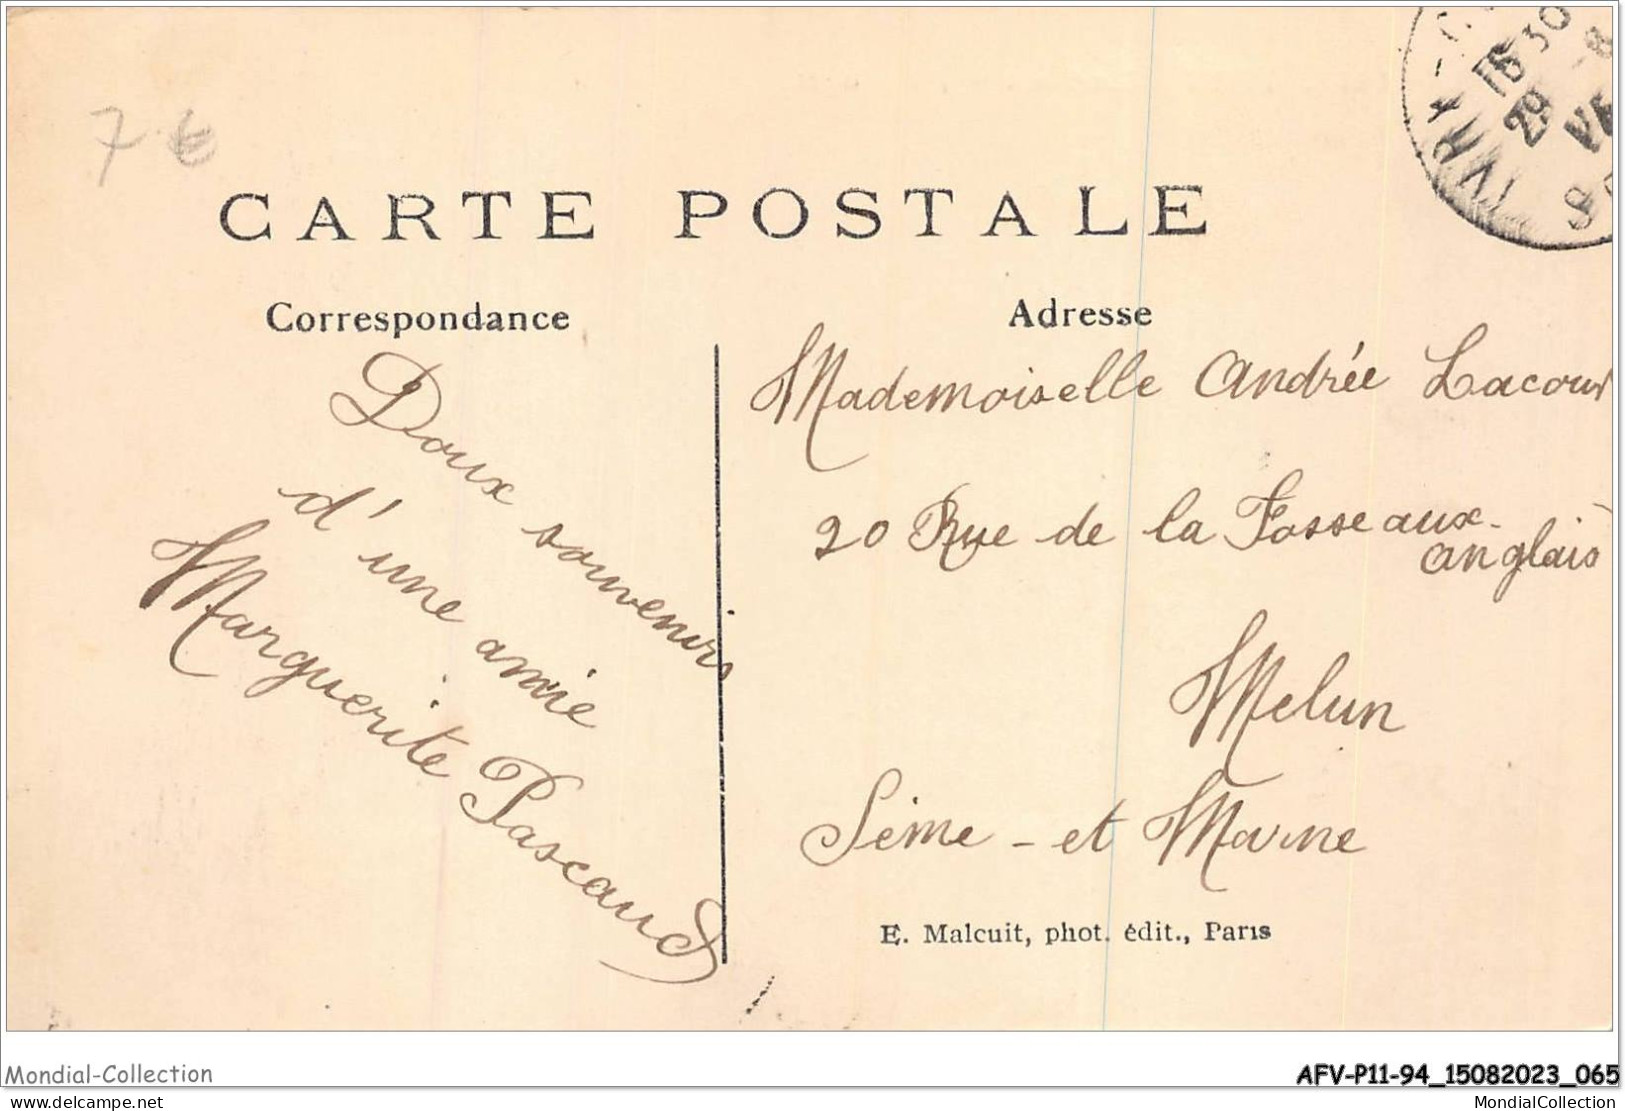 7 €
IVRY
16 30
29 -8
CARTE POSTALE
Correspondance
Adresse
Doux souvenirs
d'une amie
Marguerite Pascaud
Mademoiselle Andrée Lacour
20 Rue de la Fosse aux-
anglais
Melun
Seine - et Marne
E. Malcuit, phot. édit., Paris
Mondial-Collection
AFV-P11-94_15082023_065
delcampe.net
MondialCollection